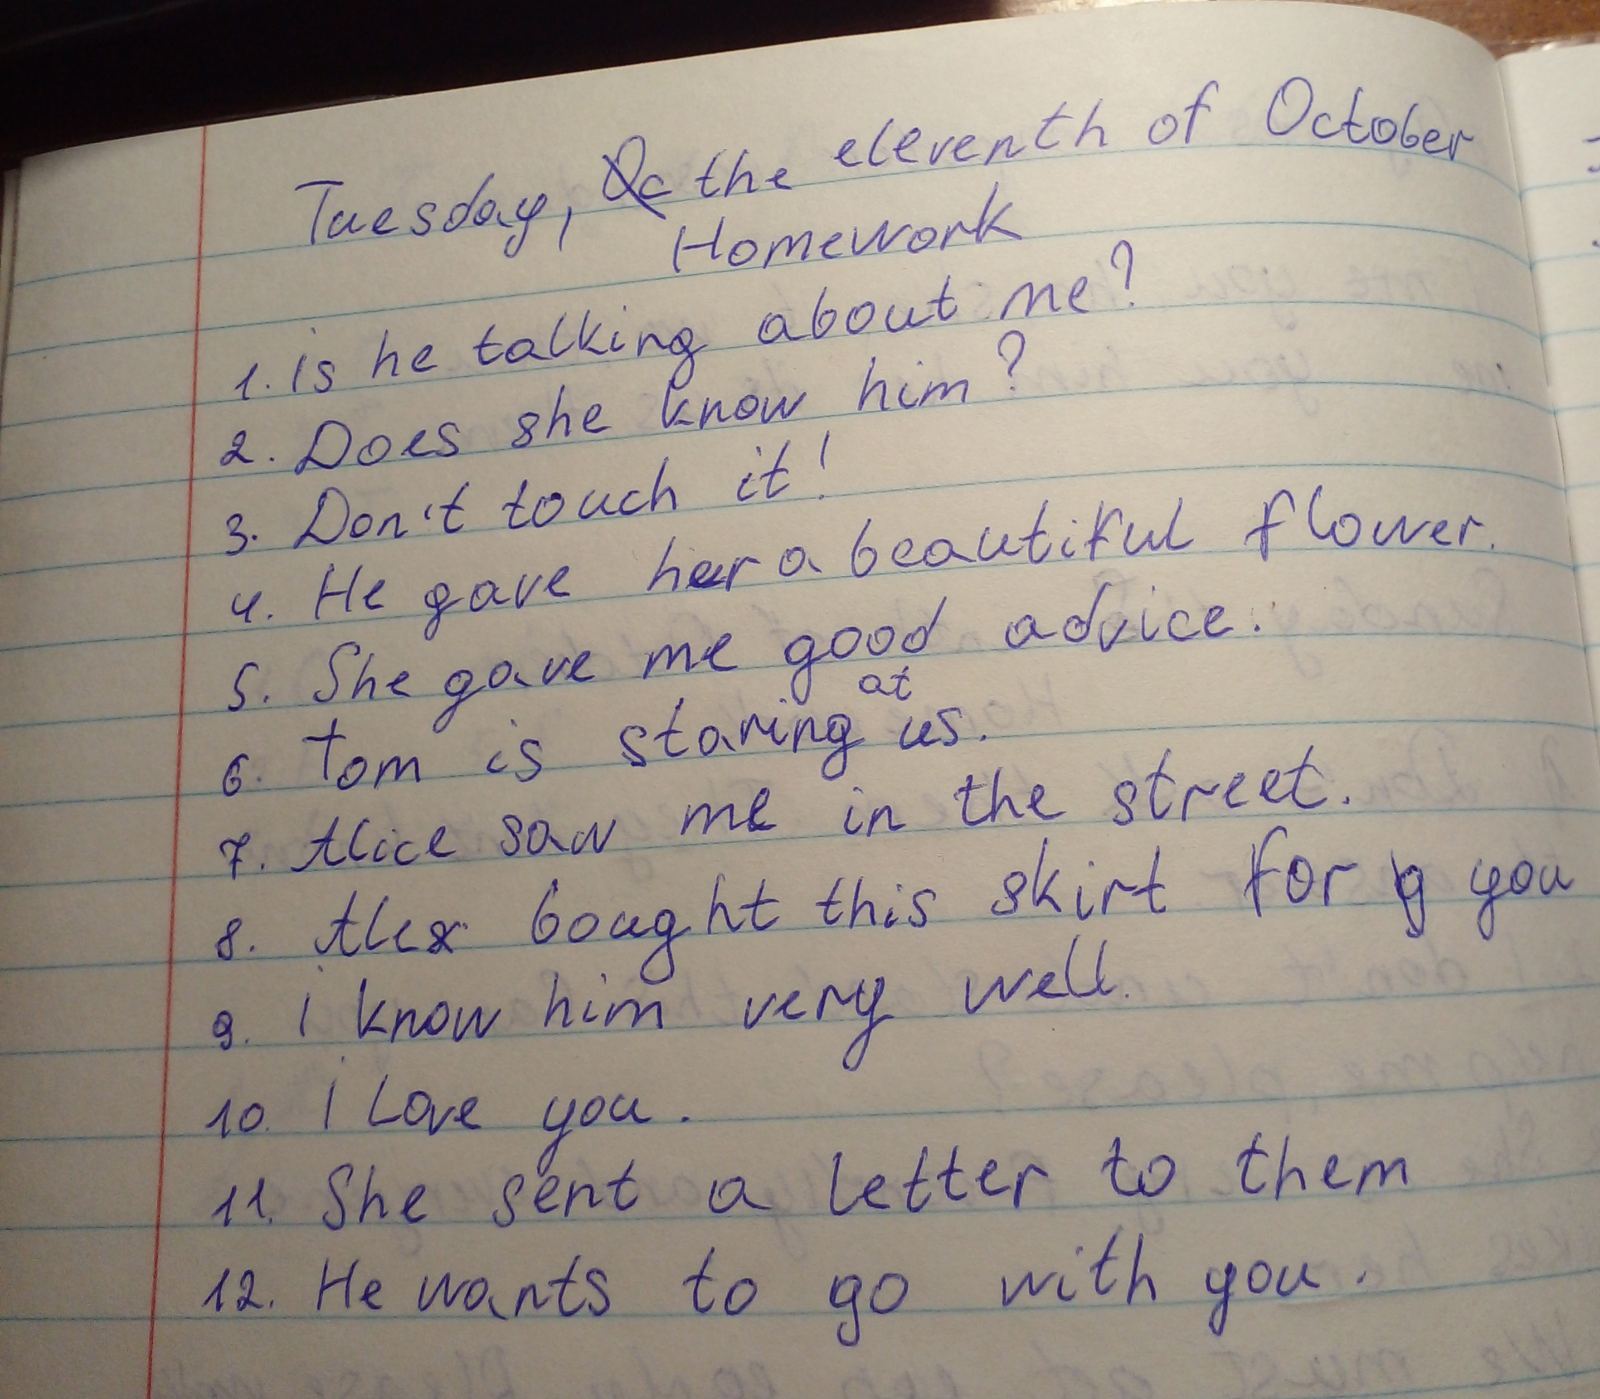 Tuesday, the eleventh of October
Homework
1. is he talking about me?
2. Does she know him?
3. Don't touch it!
4. He gave her a beautiful flower.
5. She gave me good advice.
6. Tom is staring at us.
7. Alice saw me in the street.
8. Alex bought this skirt for you
9. i know him very well.
10. i love you.
11. She sent a letter to them
12. He wants to go with you.